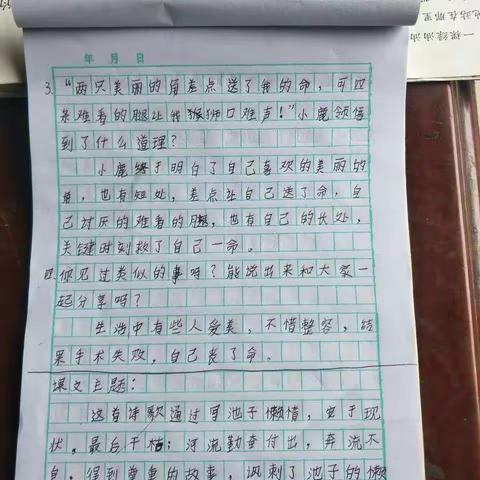 一棵绿油油
地站在那里
年 月 日
3."两只美丽的角差点送了我的命,可四
条难看的腿让我狮口难声!"小鹿领悟
到了什么道理?
小鹿终于明白了自己喜欢的美丽的
角,也有短处,差点让自己送了命,自
己讨厌的难看的腿,也有自己的长处,
关键时刻救了自己一命。
四.你见过类似的事吗?能说出来和大家一
起分享吗?
生活中有些人爱美,不惜整容,结
果手术失败,自己丧了命。
课文主题:
这首诗歌通过写池子懒惰,安于现
状,最后干枯;河流勤奋付出,奔流不
息,得到尊重的故事,讽刺了池子的懒